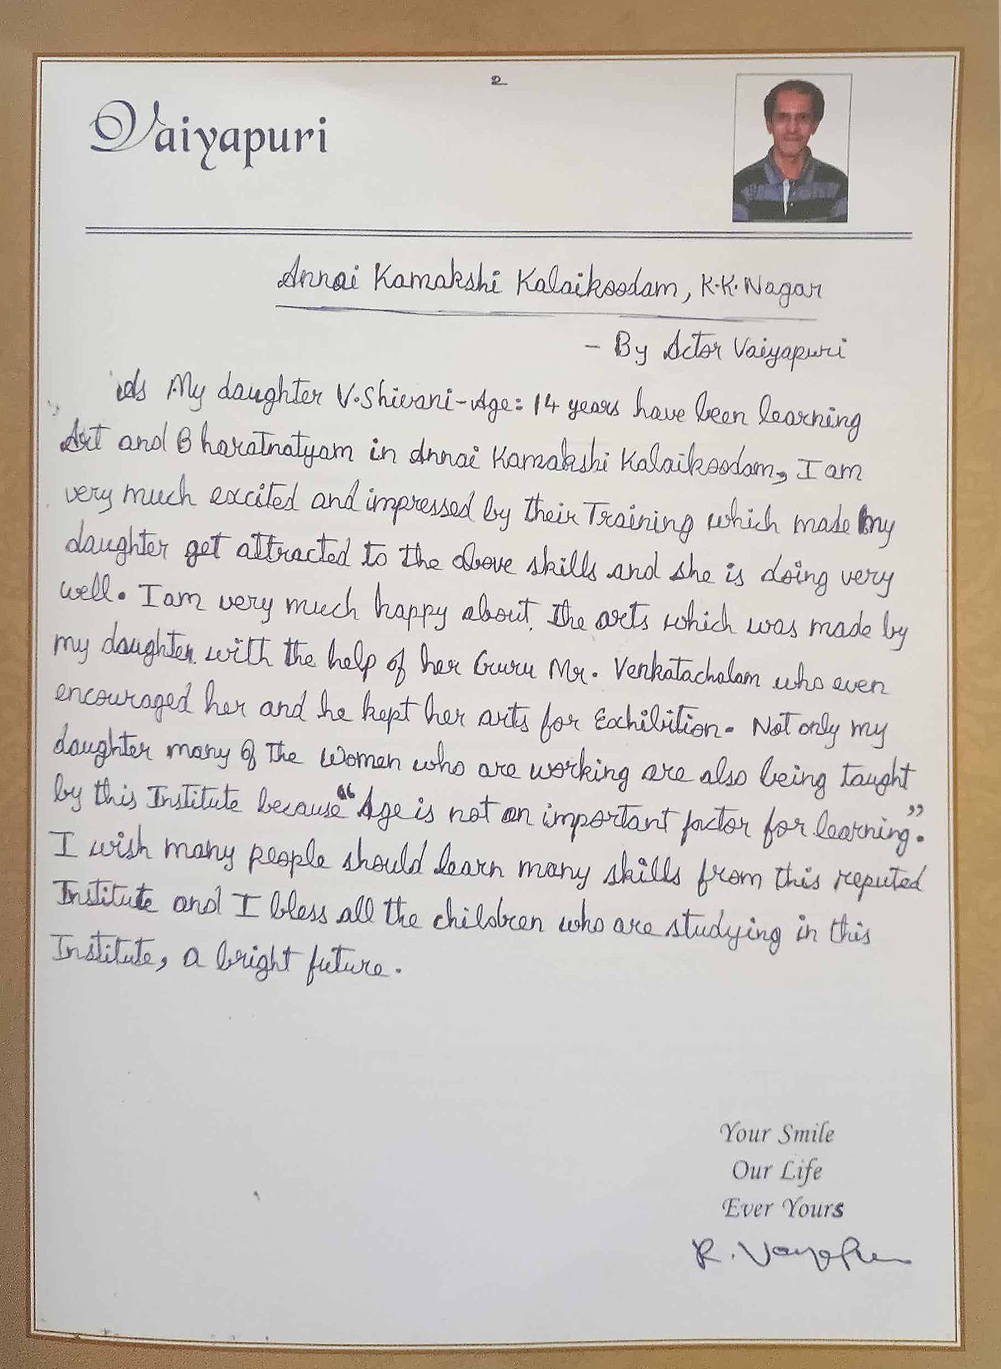 2
Vaiyapuri
Annai Kamakshi Kalaikoodam, K.K. Nagar
- By Actor Vaiyapuri
As My daughter V.Shivani-Age: 14 years have been learning
Art and Bharatnatyam in Annai Kamakshi Kalaikoodam, I am
very much excited and impressed by their Training which made my
daughter get attracted to the above skills and she is doing very
well. I am very much happy about the arts which was made by
my daughter with the help of her Guru Mr. Venkatachalam who even
encouraged her and he kept her arts for Exchibition. Not only my
daughter many of the Women who are working are also being taught
by this Institute because "Age is not an important factor for learning".
I wish many people should learn many skills from this reputed
Institute and I bless all the children who are studying in this
Institute, a bright future.
Your Smile
Our Life
Ever Yours